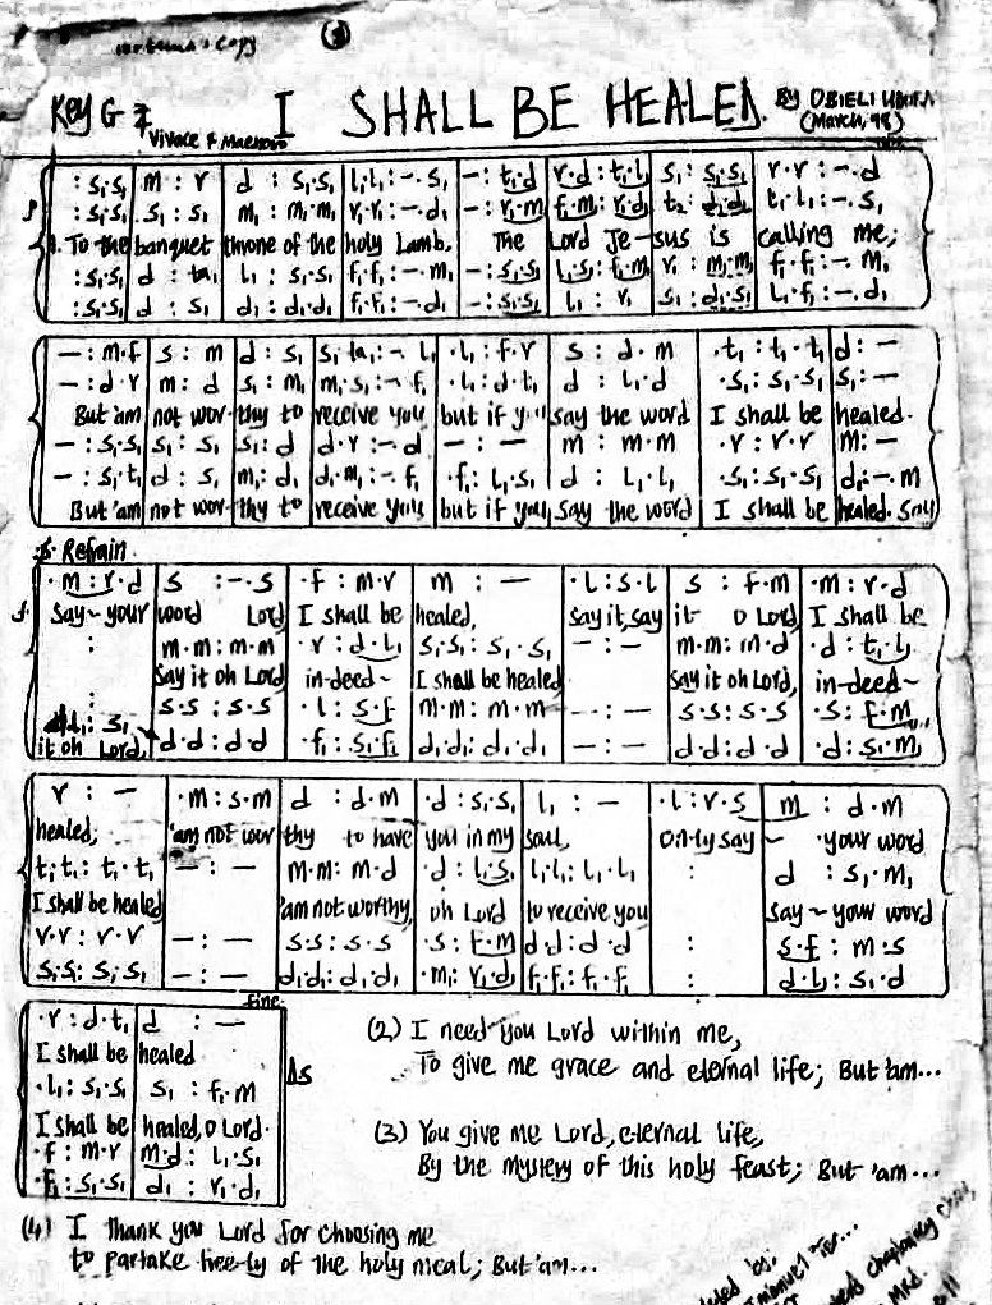 copy
I SHALL BE HEALED
KEY G
BY OBIELI
(March, 98)
Vivace &
: s₁.s₁ | m : r | d : s₁.s₁ | l₁.l₁ : -. s₁ | - : t₁.d | r.d : t₁.l₁ | s₁ : s₁.s₁ | r.r : -.d
: s₁.s₁ | s₁ : s₁ | m₁ : m₁.m₁ | r₁.r₁ : -.d₁ | - : r₁.m₁ | f₁.m₁ : r₁.d₁ | t₂ : d₁.d₁ | t₁.l₁ : -.s₁
1. To the banquet throne of the holy Lamb, The Lord Je-sus is calling me;
: s₁.s₁ | d : ta₁ | l₁ : s₁.s₁ | f₁.f₁ : -. m₁ | - : s₁.s₁ | l₁.s₁ : f₁.m₁ | r₁ : m₁.m₁ | f₁.f₁ : -. m₁
: s₁.s₁ | d : s₁ | d₁ : d₁.d₁ | f₁.f₁ : -.d₁ | - : s₁.s₁ | l₁ : r₁ | s₁ : d₁.s₁ | l₁.f₁ : -.d₁
- : m.f | s : m | d : s₁ | s₁.ta₁ : -. l₁ | .l₁ : f.r | s : d.m | .t₁ : t₁.t₁ | d : -
- : d.r | m : d | s₁ : m₁ | m₁.s₁ : -. f₁ | .l₁ : d.t₁ | d : l₁.d | .s₁ : s₁.s₁ | s₁ : -
But 'am not wor-thy to receive you but if you say the word I shall be healed.
- : s₁.s₁ | s₁ : s₁ | s₁ : d | d.r : -. d | - : - | m : m.m | .r : r.r | m : -
- : s₁.t₁ | d : s₁ | m₁ : d₁ | d₁.m₁ : -. f₁ | .f₁ : l₁.s₁ | d : l₁.l₁ | .s₁ : s₁.s₁ | d₁ : -.m
But 'am not wor-thy to receive you but if you say the word I shall be healed. Say
Refrain
.m : r.d | s : -.s | .f : m.r | m : - | .l : s.l | s : f.m | .m : r.d
Say~your word Lord I shall be healed, say it, say it O Lord I shall be
: | m.m : m.m | .r : d.l₁ | s₁.s₁ : s₁.s₁ | - : - | m.m : m.d | .d : t₁.l₁
Say it oh Lord in-deed~ I shall be healed Say it oh Lord, in-deed~
: | s.s : s.s | .l : s.f | m.m : m.m | - : - | s.s : s.s | .s : f.m
l₁ : s₁ | d.d : d.d | .f₁ : s₁.f₁ | d₁.d₁ : d₁.d₁ | - : - | d.d : d.d | .d : s₁.m₁
it oh Lord,
r : - | .m : s.m | d : d.m | .d : s₁.s₁ | l₁ : - | .l : r.s | m : d.m
healed, 'am not wor thy to have you in my soul, only say ~ your word
t₁.t₁ : t₁.t₁ | - : - | m.m : m.d | .d : l₁.s₁ | l₁.l₁ : l₁.l₁ | : | d : s₁.m₁
I shall be healed 'am not worthy, oh Lord to receive you Say~your word
r.r : r.r | - : - | s.s : s.s | .s : f.m | d.d : d.d | : | s.f : m.s
s₁.s₁ : s₁.s₁ | - : - | d₁.d₁ : d₁.d₁ | .m₁ : r₁.d₁ | f₁.f₁ : f₁.f₁ | : | d.l₁ : s₁.d
fine
.r : d.t₁ | d : -
I shall be healed
Ds
.l₁ : s₁.s₁ | s₁ : f₁.m
I shall be healed, O Lord.
.f : m.r | m.d : l₁.s₁
.f₁ : s₁.s₁ | d₁ : r₁.d₁
(2) I need you Lord within me,
To give me grace and eternal life; But 'am...
(3) You give me Lord, eternal life,
By the mystery of this holy feast; But 'am...
(4) I Thank you Lord for choosing me
to partake freely of the holy meal; But 'am...